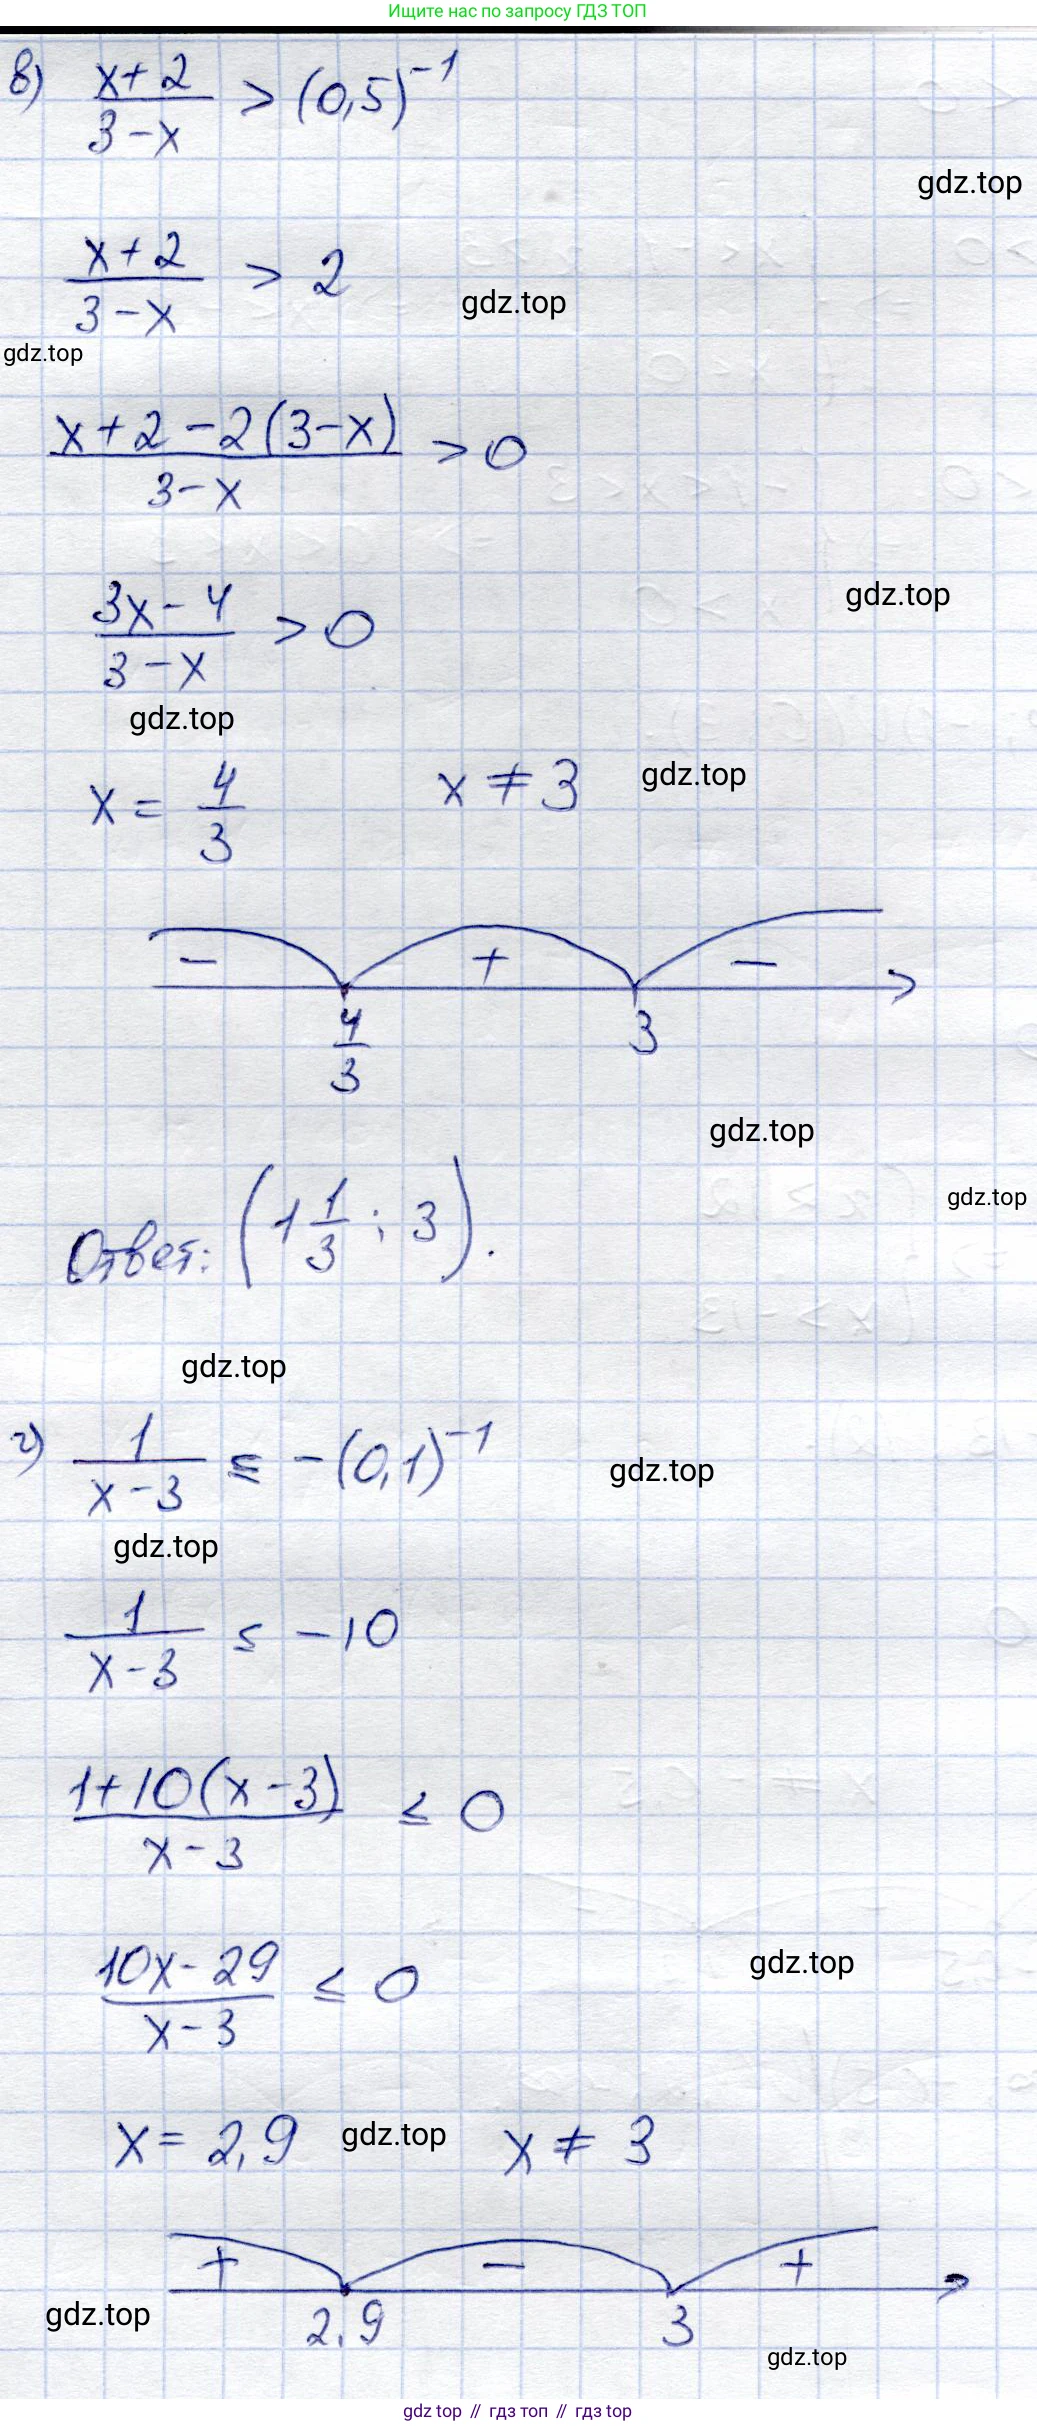 Ищите нас по запросу ГДЗ ТОП
в) (x+2)/(3-x) > (0,5)^-1
gdz.top
(x+2)/(3-x) > 2
gdz.top
gdz.top
(x+2-2(3-x))/(3-x) > 0
(3x-4)/(3-x) > 0
gdz.top
gdz.top
x = 4/3 x ≠ 3
gdz.top
- + -
4/3 3
gdz.top
gdz.top
Ответ: (1 1/3 ; 3).
gdz.top
г) 1/(x-3) ≤ -(0,1)^-1
gdz.top
gdz.top
1/(x-3) ≤ -10
(1+10(x-3))/(x-3) ≤ 0
(10x-29)/(x-3) ≤ 0
gdz.top
x = 2,9 gdz.top x ≠ 3
+ - +
2,9 3
gdz.top
gdz.top
gdz top // гдз топ // gdz top